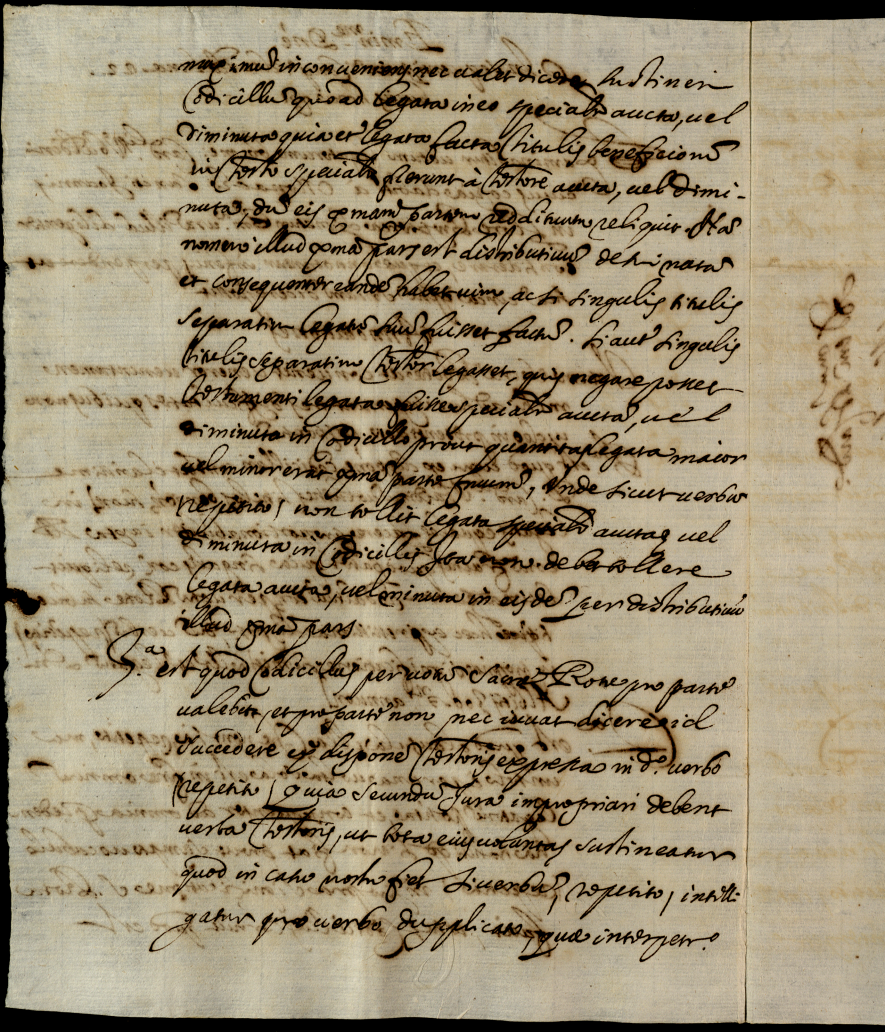 maximũ inconveniens nec valet dicere sustineri
Codicillũ quoad legata in eo specialr aucta, vel
diminuta quia et legata facta titulis beneficiorũ
in testo specialr fuerunt à testore aucta, vel dimi-
nuta, dũ eis pmam partem reddituum reliquit. Nã
nomen illud pma pars est distributivũ de sui natã
et consequenter eandẽ habet vim, ac si singulis titulis
separatim legatũ fuisset factũ. Si aut singulis
titulis separatim testor legasset, quis negare posset
testamenti legata fuisse specialr aucta, vel
diminuta in Codicillo prout quantitas legata maior
vel minor erat pma parte fruuũ, Unde sicut verbũ
repetito, non tollit legata specialr aucta, vel
diminuta in Codicillis Ita non debet tollere
legata aucta, vel minuta in eisdẽ per distributivũ
illud pma pars.
3.a est quod Codicillus per votũ Sacræ Rotæ pro parte
valebit, et pro parte non nec iuvat dicere id
succedere ex dispone testoris expressa in do. verbo
repetito, quia secundũ Jura impropriari debent
verba testoris, ut tota eius voluntas sustineatur
quod in casu nostro fiet si verbũ, repetito, intelli
gatur pro verbo duplicato, quæ interpetro.